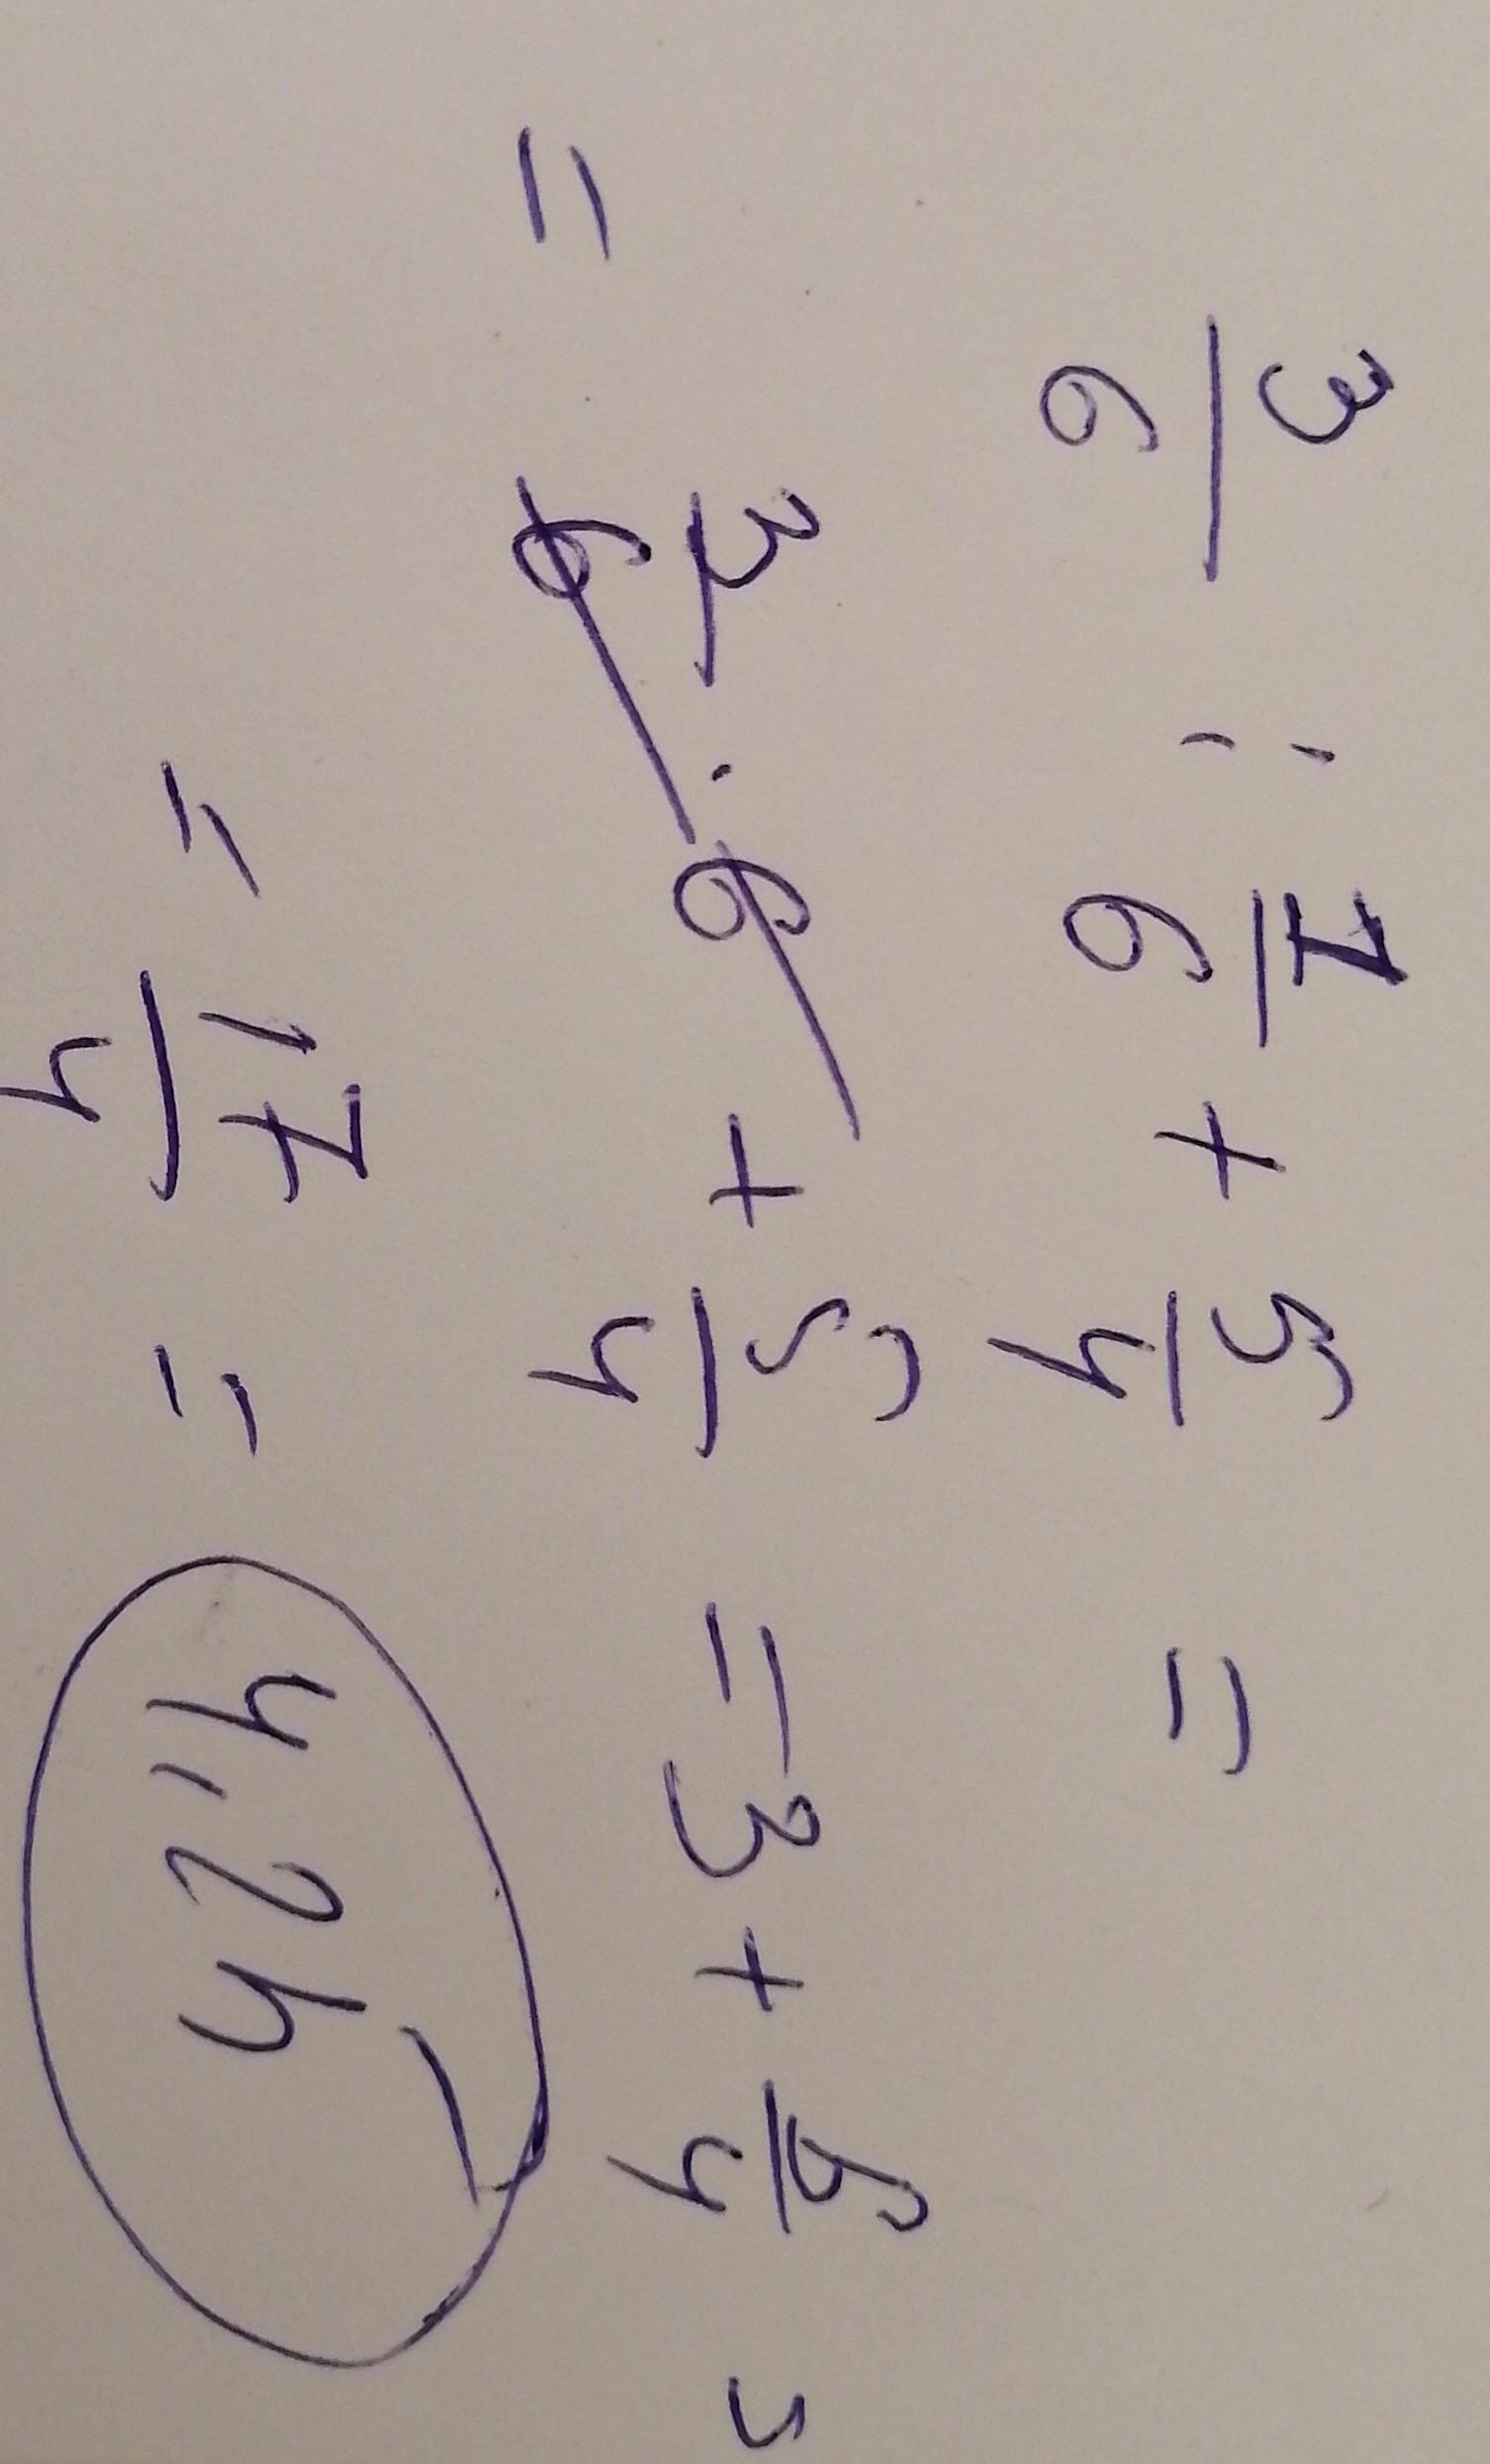 3/6 : 1/6 + 5/4 =
= 3/6 · 6 + 5/4 = 3 + 5/4 =
= 17/4 = 4,25